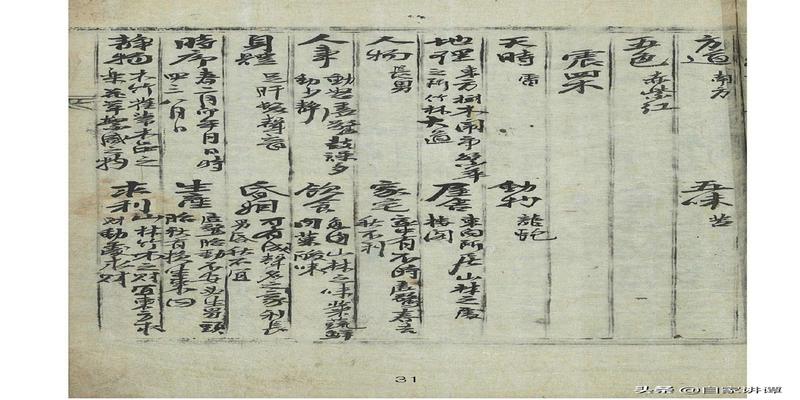 方道 南方
五味 苦
五色 赤紫红
震四木
天時 雷
動物 龍蛇
地理 東方樹木闹市
之所竹林大道
屋舍 東向所居山林之處
楼阁
人物 長男
家宅 宅中有不時虛驚春吉
秋不利
人事 動怒虛驚鼓譟多
動少静
飲食 山林之味菜蔬鮮
肉菓酸味
身體 足肝髮聲音
婚姻 可有成聲名之家利長
男婚秋不宜
時序 春二月卯年月日時
四三八月日
生產 虛驚胎動不安头生男頭
胎秋有損坐東向
静物 木竹萑葦木品之
樂花草繁盛之物
求利 山林竹木之財宜東方求
財動處求財
31
头条 @自家讲谭